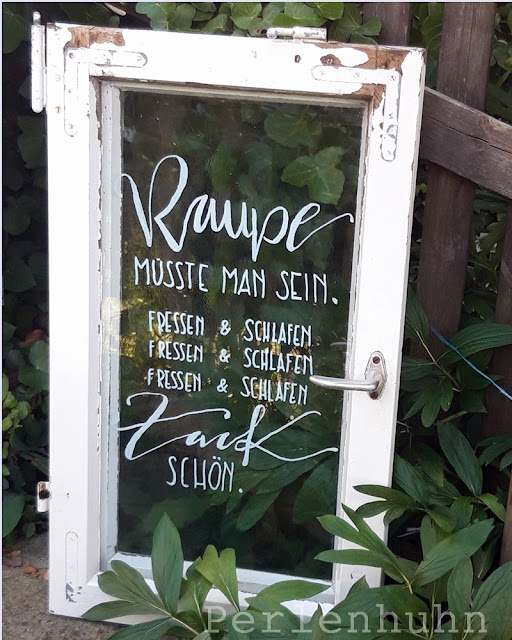 Raupe
MÜSSTE MAN SEIN.
FRESSEN & SCHLAFEN
FRESSEN & SCHLAFEN
FRESSEN & SCHLAFEN
Zack
SCHÖN.
Perlenhuhn